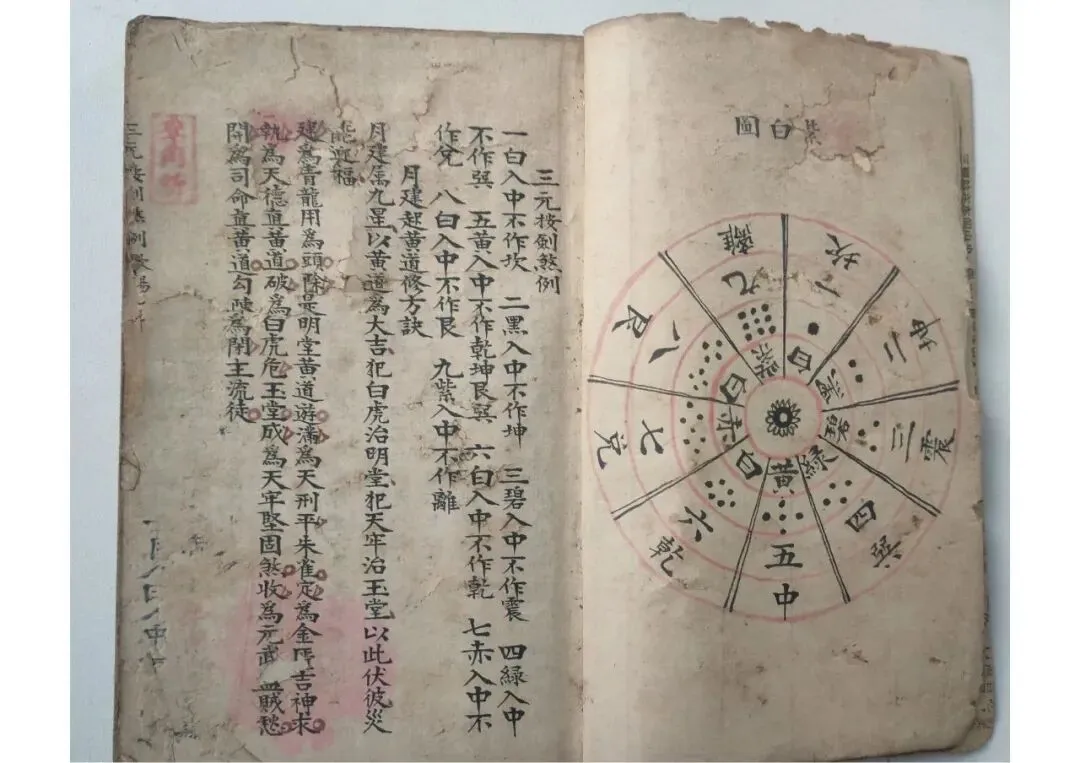 紫白圖
坎一白
坤二黑
震三碧
巽四綠
中五黃
乾六白
兌七赤
艮八白
離九紫
三元按劍煞例
一白入中不作坎 二黑入中不作坤 三碧入中不作震 四綠入中
不作巽 五黃入中不作乾坤艮巽 六白入中不作乾 七赤入中不
作兌 八白入中不作艮 九紫入中不作離
月建起黃道修方訣
月建屬九星以黃道為大吉犯白虎治明堂犯天牢治玉堂以此伏彼災
能迎福
建為青龍用為頭除是明堂黃道遊滿為天刑平朱雀定為金匱吉神求
執為天德直黃道破為白虎危玉堂成為天牢堅固煞收為元武盜賊愁
開為司命直黃道勾陳為閉主流徒
三元按劍煞例